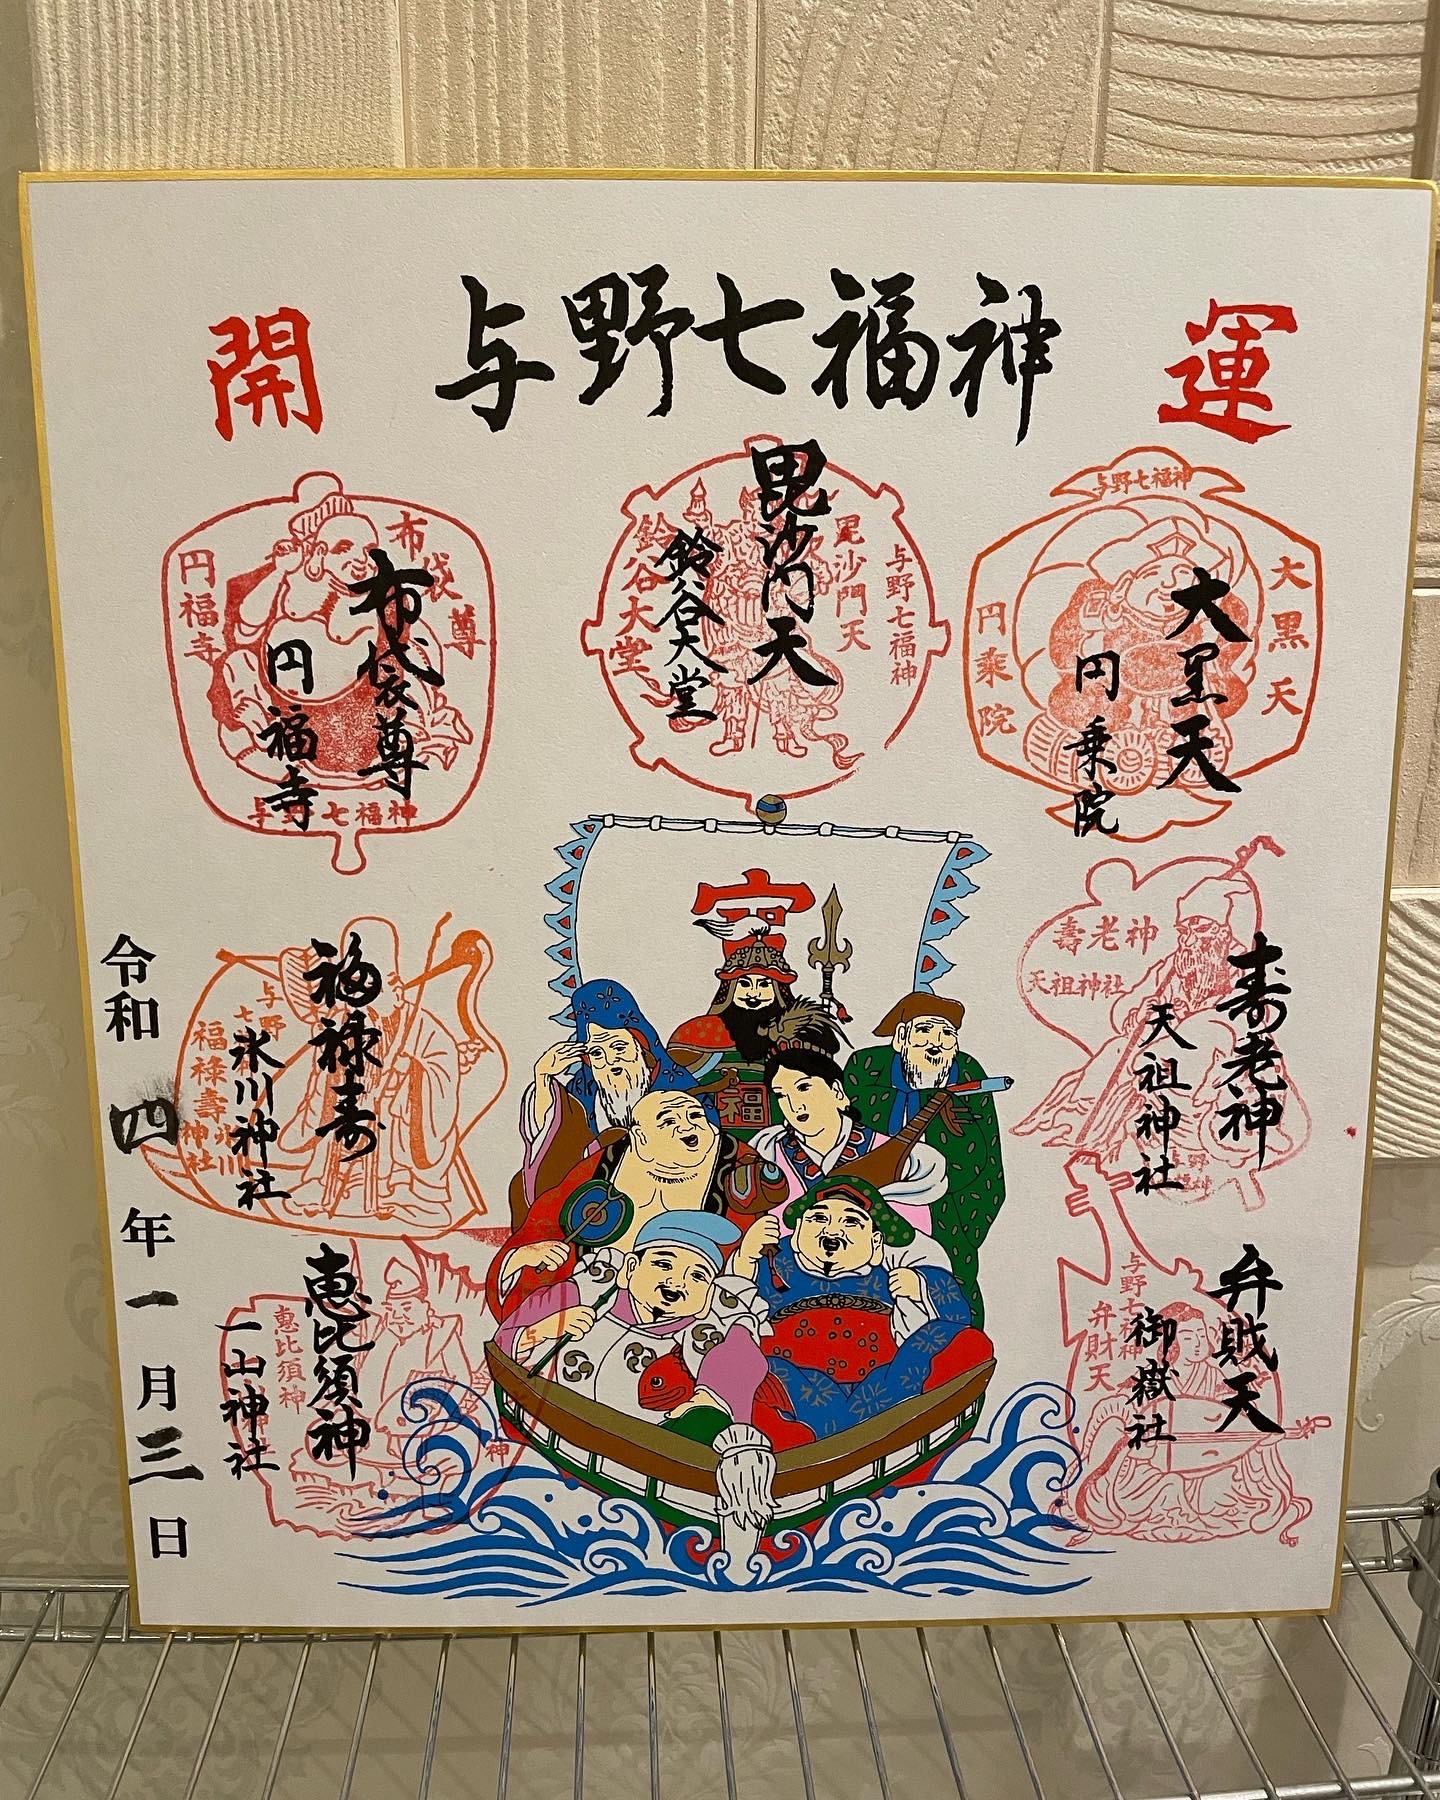 開 与野七福神 運
大黒天
円乗院
与野七福神
大黒天
円乗院
毘沙門天
鈴谷大堂
与野七福神
毘沙門天
鈴谷大堂
布袋尊
円福寺
布袋尊
円福寺
与野七福神
寿老神
天祖神社
壽老神
天祖神社
与野
弁財天
御嶽社
与野七福神
弁財天
福禄寿
氷川神社
与野
七
福禄壽
氷川
神社
恵比須神
一山神社
恵比須神
宝
福
令和四年一月三日